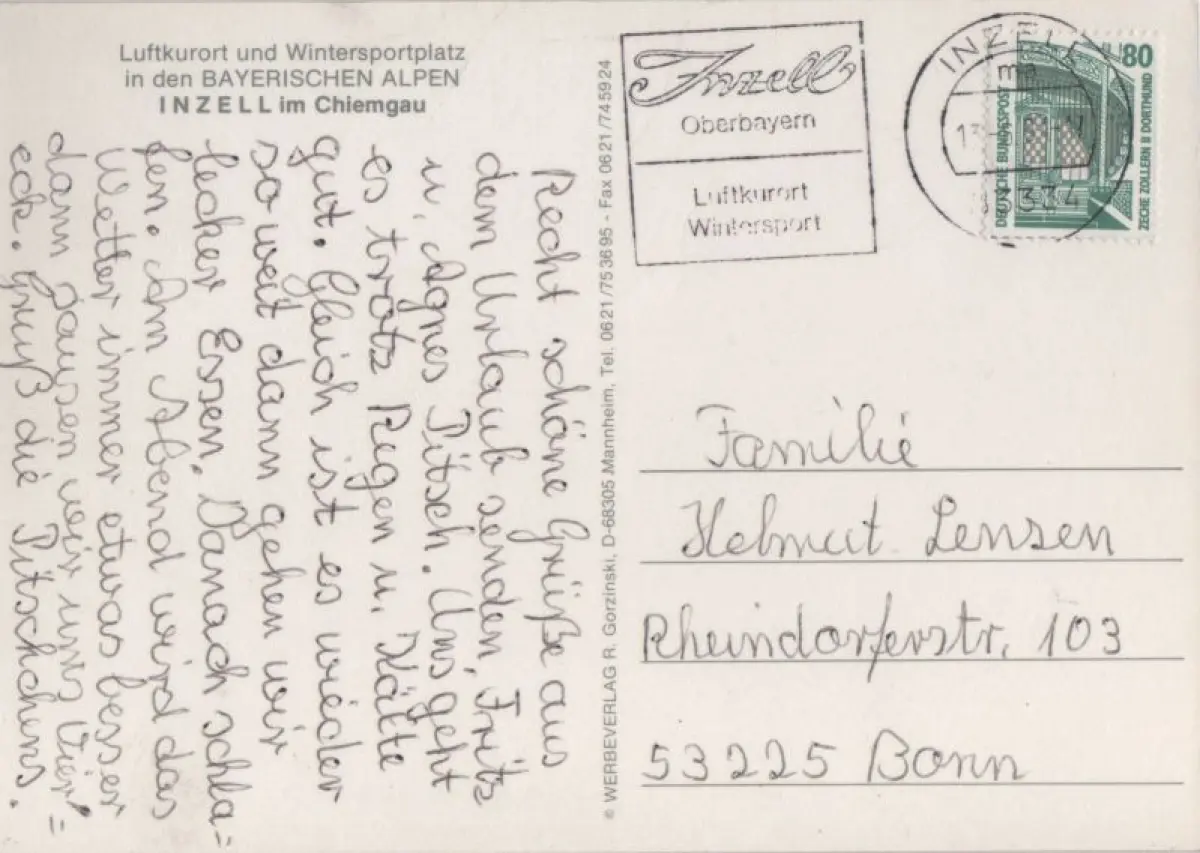 Luftkurort und Wintersportplatz
in den BAYERISCHEN ALPEN
INZELL im Chiemgau
Recht schöne Grüße aus
dem Urlaub senden Fritz
u. Agnes Pitsch. Uns geht
es trotz Regen u. Kälte
gut. Gleich ist es wieder
so weit dann gehen wir
lecker Essen. Danach schla=
fen. Am Abend wird das
Wetter immer etwas besser
dann sausen wir ums Vier=
eck. Gruß die Pitschens.
© WERBEVERLAG R. Gorzinski, D-68305 Mannheim, Tel. 0621/753695 - Fax 0621/745924
Inzell
Oberbayern
Luftkurort
Wintersport
INZELL
ma
83334
80
DEUTSCHE BUNDESPOST
ZECHE ZOLLERN II DORTMUND
Familie
Helmut Lenzen
Rheindorferstr. 103
53225 Bonn